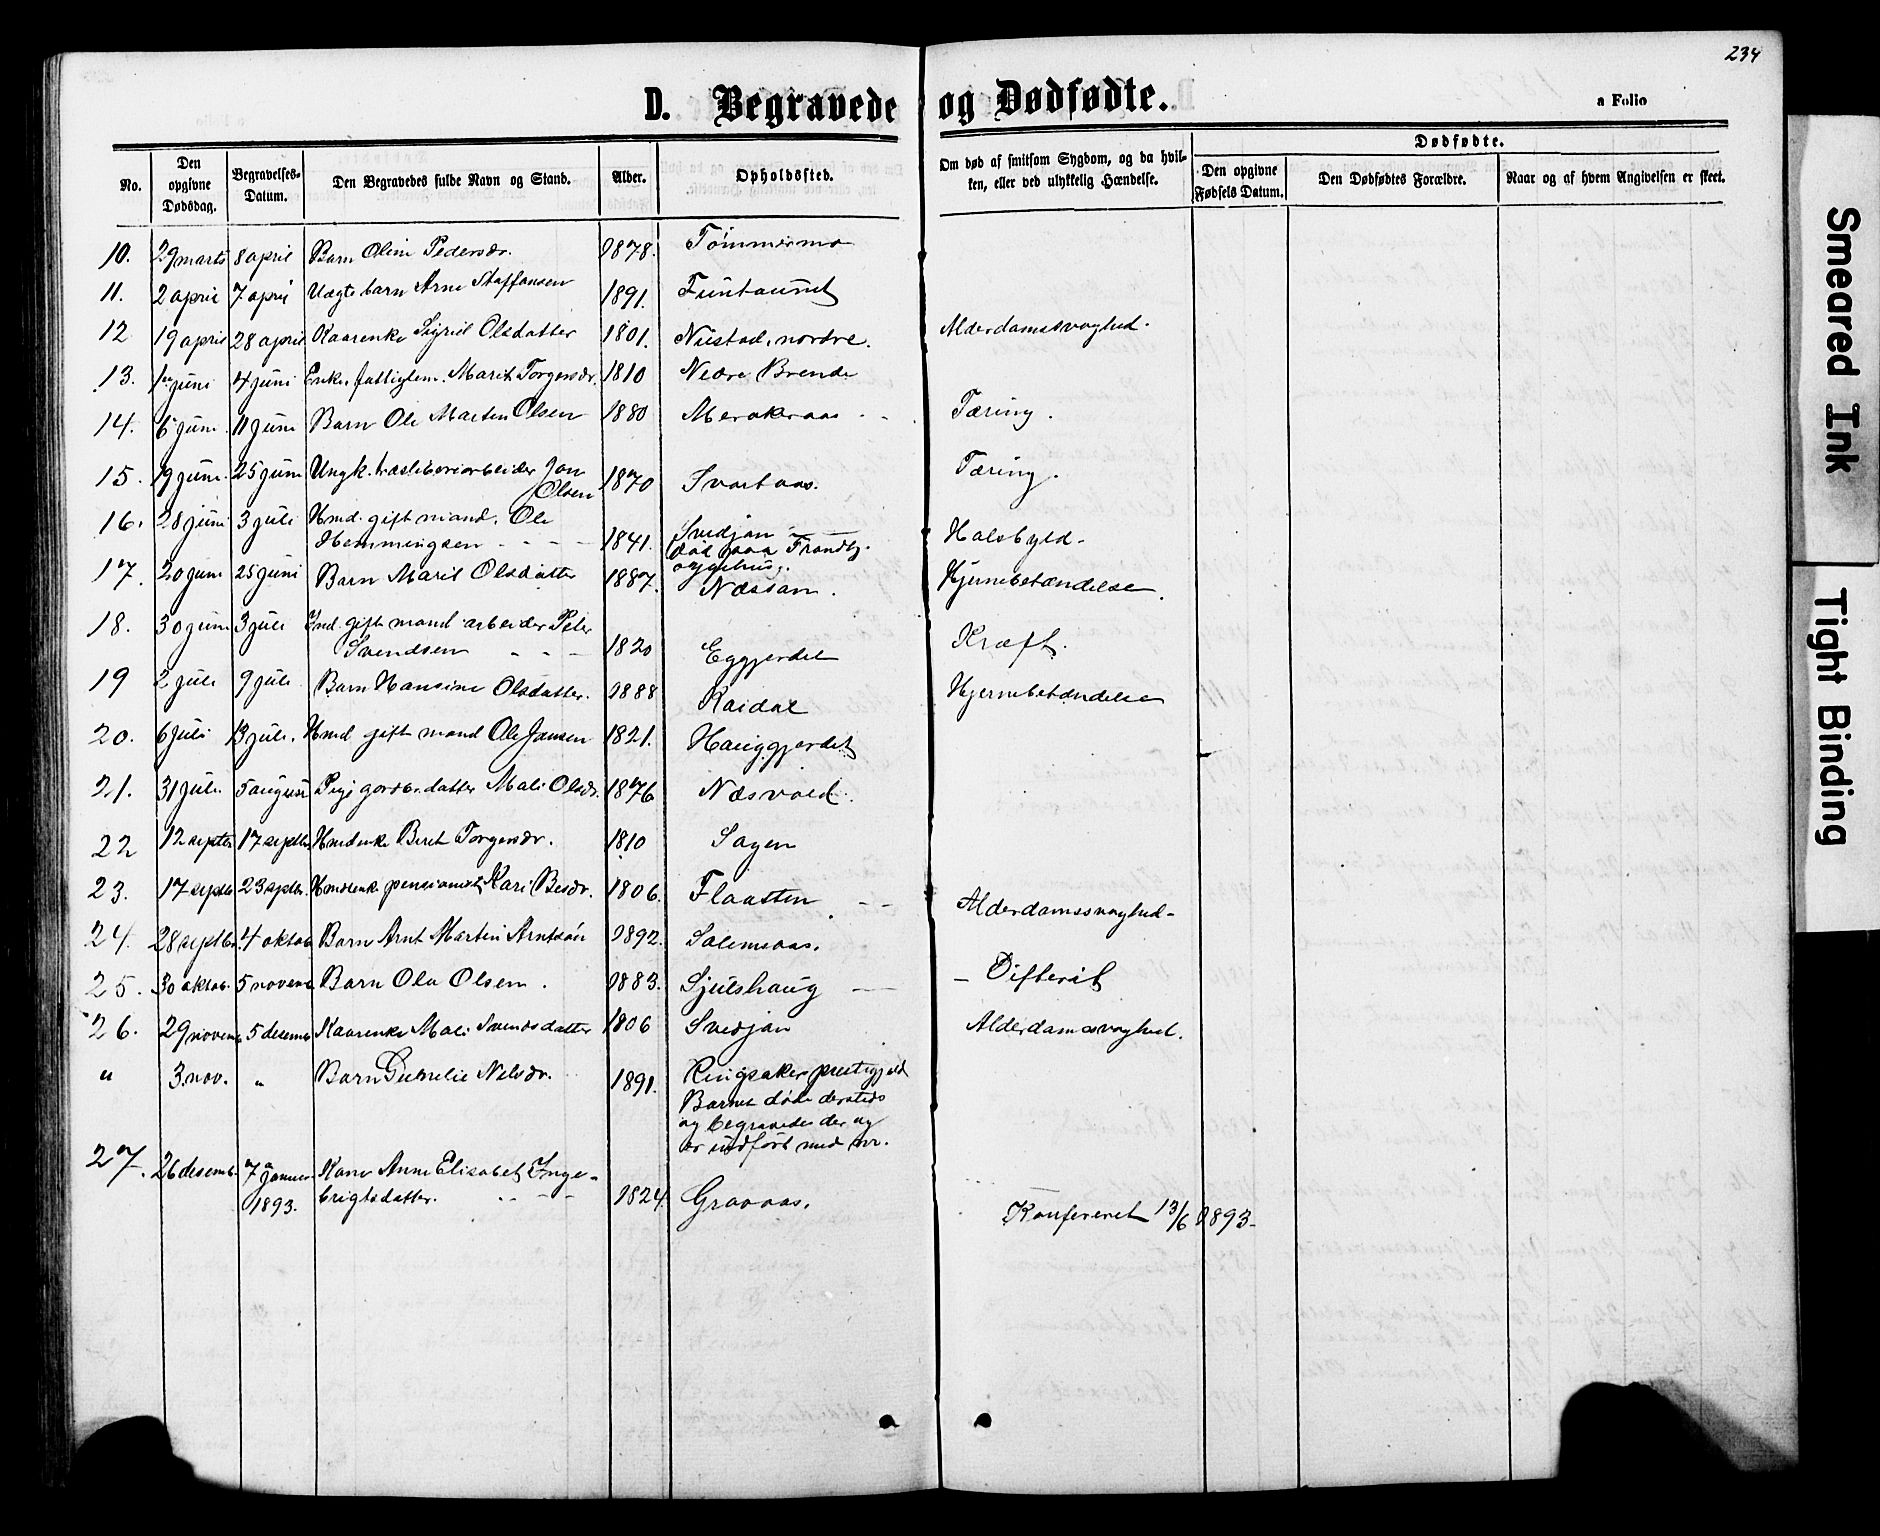 234
D. Begravede og Dødfødte.
a Folio
No.
Den opgivne Dødsdag.
Begravelses-Datum.
Den Begravedes fulde Navn og Stand.
Alder.
Opholdssted.
Om død af smitsom Sygdom, og da hvilken, eller ved ulykkelig Hændelse.
Dødfødte.
Den opgivne Fødsels Datum.
Den Dødfødtes Forældre.
Naar og af hvem Angivelsen er skeet.
10. 29 marts 8 april Barn Oline Pedersdr. 1878. Tømmermo
11. 2 april 7 april Uægte barn Arne Staffansen 1891. Funtaunet
12 19 april 28 april Kaarenke Sigrid Olsdatter 1801. Nustad, nordre. Alderdomssvaghed.
13. 1 juni 4 juni Enke, fattiglem. Marit Torgersdr. 1810 Nedre Brende
14. 6 juni 11 juni Barn Ole Martin Olsen 1880 Merakeraas Tæring.
15. 19 juni 25 juni Ungk. træsliberiarbeider Jon Olsen 1870 Svartaas. Tæring.
16. 28 juni 3 juli Hmd. gift mand. Ole
Hemmingsen 1841. Svedjan Halsbyld.
død paa Trondhj. sygehus.
17. 20 juni 25 juni Barn Marit Olsdatter 1887. Næssan. Hjernebetændelse.
18. 30 juni 3 juli Ind. gift mand arbeider Peter
Svendsen 1820 Eggjerdet Kræft.
19 2 juli 9 juli Barn Hansine Olsdatter. 1888 Kaidal Hjernebetændelse
20. 6 juli 13 juli. Hmd gift mand Ole Jansen 1821. Hauggjerdet
21. 31 juli 5 august Pige gardbr.datter Mali Olsdr. 1876 Næsvold.
22 12 septer 17 septer Hmdenke Beret Torgersdr. 1810 Sagen
23. 17 septer 23 septer. Hmdenke pensionist Kari Besdr. 1806. Flaatten Alderdomssvaghed
24. 28 septbr. 4 oktob Barn Arnt Martin Arntsen 1892. Salemsaas.
25. 30 oktob. 5 novem Barn Ola Olsen. 1883. Sjulshaug Difterit
26. 29 novemb 5 desemb Kaarenke Mali Svendsdatter 1806 Svedjan Alderdomsvaghed.
" 3. nov. " Barn Gunelie Nilsdr. 1891. Ringsaker prestegjeld
Barnet døde dersteds
og begravedes der og
er indført med nr.
27. 26 desemb. 7 januar 1893. Kone Anne Elisabet Inge-
brigtsdatter. 1824. Graaaas.
Konfereret 13/6 1893.
Smeared Ink
Tight Binding